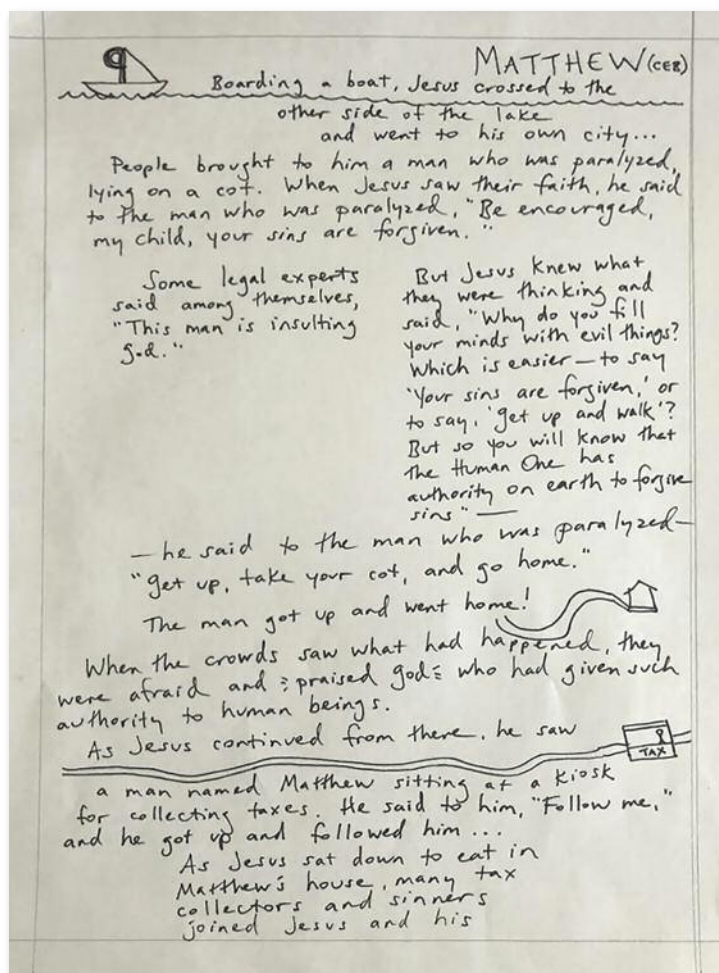 MATTHEW (CEB)
Boarding a boat, Jesus crossed to the
other side of the lake
and went to his own city...
People brought to him a man who was paralyzed,
lying on a cot. When Jesus saw their faith, he said
to the man who was paralyzed, "Be encouraged,
my child, your sins are forgiven."
Some legal experts
said among themselves,
"This man is insulting
god."
But Jesus knew what
they were thinking and
said, "Why do you fill
your minds with evil things?
Which is easier — to say
'Your sins are forgiven,' or
to say, 'get up and walk'?
But so you will know that
the Human One has
authority on earth to forgive
sins" —
— he said to the man who was paralyzed —
"get up, take your cot, and go home."
The man got up and went home!
When the crowds saw what had happened, they
were afraid and praised god who had given such
authority to human beings.
As Jesus continued from there, he saw
TAX
a man named Matthew sitting at a kiosk
for collecting taxes. He said to him, "Follow me,"
and he got up and followed him...
As Jesus sat down to eat in
Matthew's house, many tax
collectors and sinners
joined Jesus and his